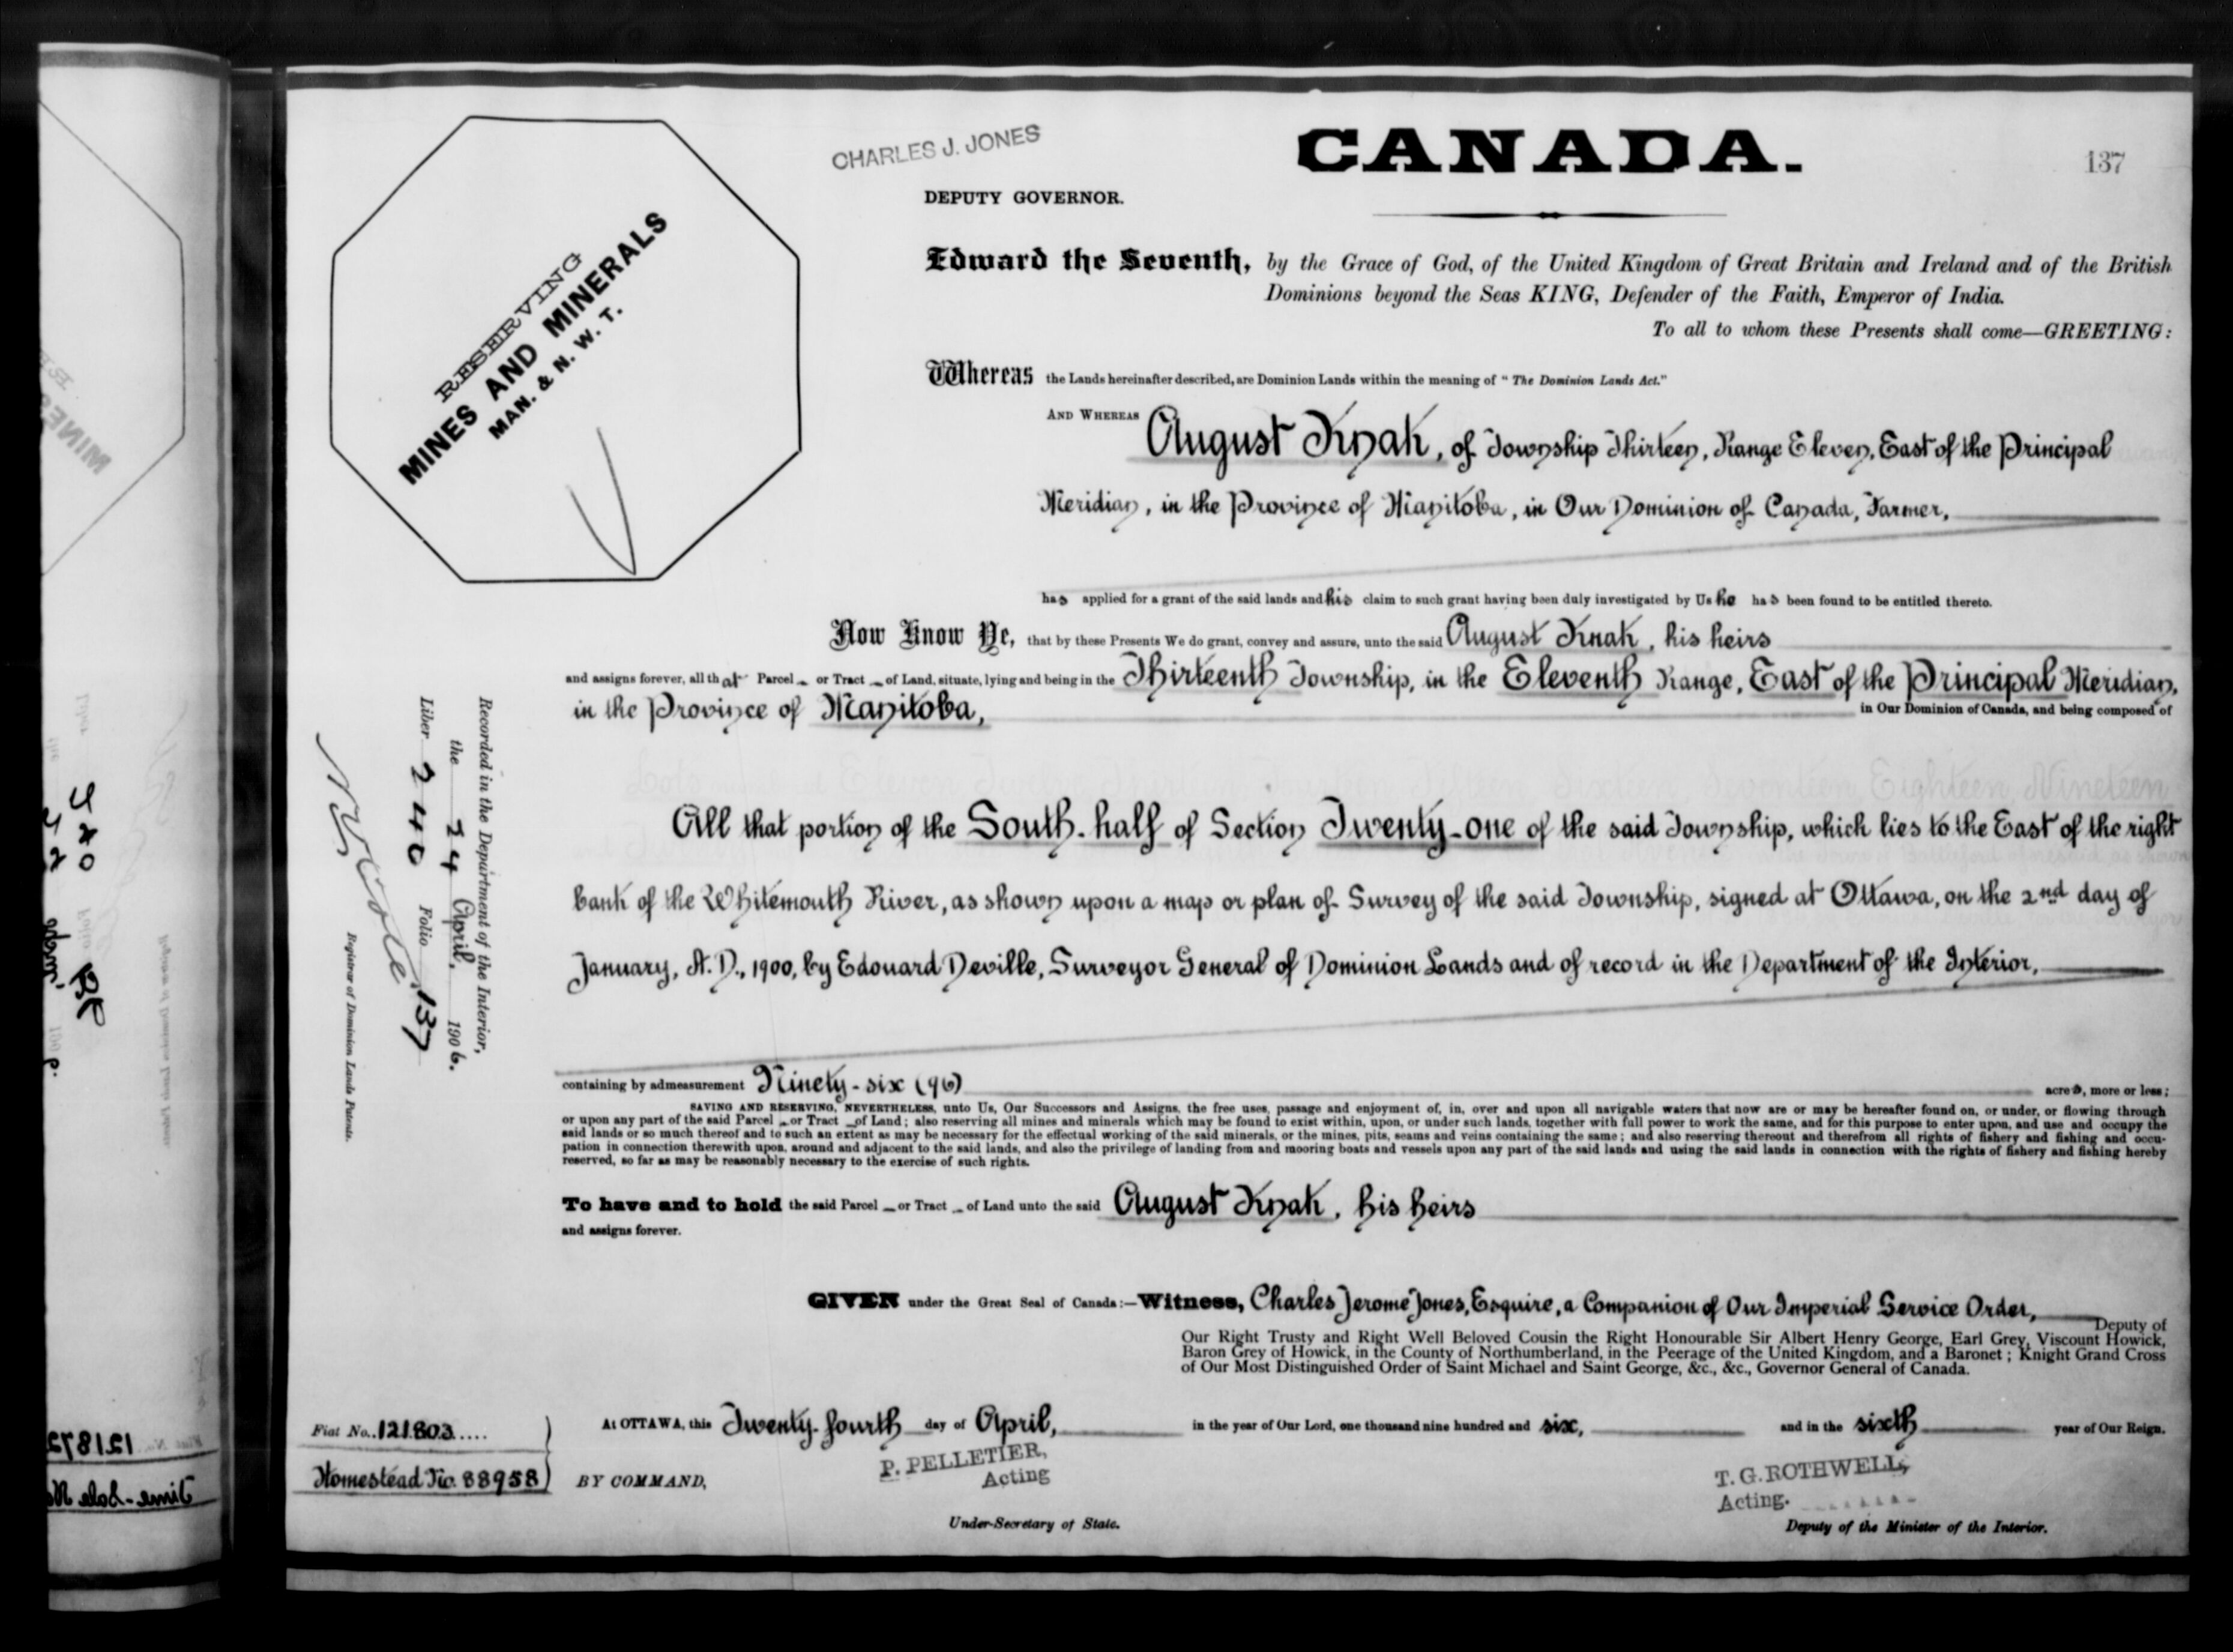 CHARLES J. JONES
CANADA.
137
DEPUTY GOVERNOR.
RESERVING
MINES AND MINERALS
MAN. & N. W. T.
Edward the Seventh, by the Grace of God, of the United Kingdom of Great Britain and Ireland and of the British
Dominions beyond the Seas KING, Defender of the Faith, Emperor of India.
To all to whom these Presents shall come—GREETING:
Whereas the Lands hereinafter described, are Dominion Lands within the meaning of "The Dominion Lands Act."
AND WHEREAS August Knak, of Township Thirteen, Range Eleven, East of the Principal
Meridian, in the Province of Manitoba, in Our Dominion of Canada, Farmer,
has applied for a grant of the said lands and his claim to such grant having been duly investigated by Us he has been found to be entitled thereto.
Now Know Ye, that by these Presents We do grant, convey and assure, unto the said August Knak, his heirs
and assigns forever, all that Parcel or Tract of Land, situate, lying and being in the Thirteenth Township, in the Eleventh Range, East of the Principal Meridian,
in the Province of Manitoba, in Our Dominion of Canada, and being composed of
All that portion of the South-half of Section Twenty-one of the said Township, which lies to the East of the right
bank of the Whitemouth River, as shown upon a map or plan of Survey of the said Township, signed at Ottawa, on the 2nd day of
January, A. D., 1900, by Edouard Deville, Surveyor General of Dominion Lands and of record in the Department of the Interior,
containing by admeasurement Ninety-six (96) acres, more or less;
SAVING AND RESERVING, NEVERTHELESS, unto Us, Our Successors and Assigns, the free uses, passage and enjoyment of, in, over and upon all navigable waters that now are or may be hereafter found on, or under, or flowing through
or upon any part of the said Parcel or Tract of Land; also reserving all mines and minerals which may be found to exist within, upon, or under such lands, together with full power to work the same, and for this purpose to enter upon, and use and occupy the
said lands or so much thereof and to such an extent as may be necessary for the effectual working of the said minerals, or the mines, pits, seams and veins containing the same; and also reserving thereout and therefrom all rights of fishery and fishing and occu-
pation in connection therewith upon, around and adjacent to the said lands, and also the privilege of landing from and mooring boats and vessels upon any part of the said lands and using the said lands in connection with the rights of fishery and fishing hereby
reserved, so far as may be reasonably necessary to the exercise of such rights.
To have and to hold the said Parcel or Tract of Land unto the said August Knak, his heirs
and assigns forever.
GIVEN under the Great Seal of Canada:—Witness, Charles Jerome Jones, Esquire, a Companion of Our Imperial Service Order, Deputy of
Our Right Trusty and Right Well Beloved Cousin the Right Honourable Sir Albert Henry George, Earl Grey, Viscount Howick,
Baron Grey of Howick, in the County of Northumberland, in the Peerage of the United Kingdom, and a Baronet; Knight Grand Cross
of Our Most Distinguished Order of Saint Michael and Saint George, &c., &c., Governor General of Canada.
At OTTAWA, this Twenty-fourth day of April, in the year of Our Lord, one thousand nine hundred and six, and in the sixth year of Our Reign.
BY COMMAND,
P. PELLETIER,
Acting
Under-Secretary of State.
T. G. ROTHWELL,
Acting.
Deputy of the Minister of the Interior.
Fiat No. 121803
Homestead No. 88958
Recorded in the Department of the Interior,
the 24 April, 1906.
Liber 240 Folio 137
Registrar of Dominion Lands Patents.